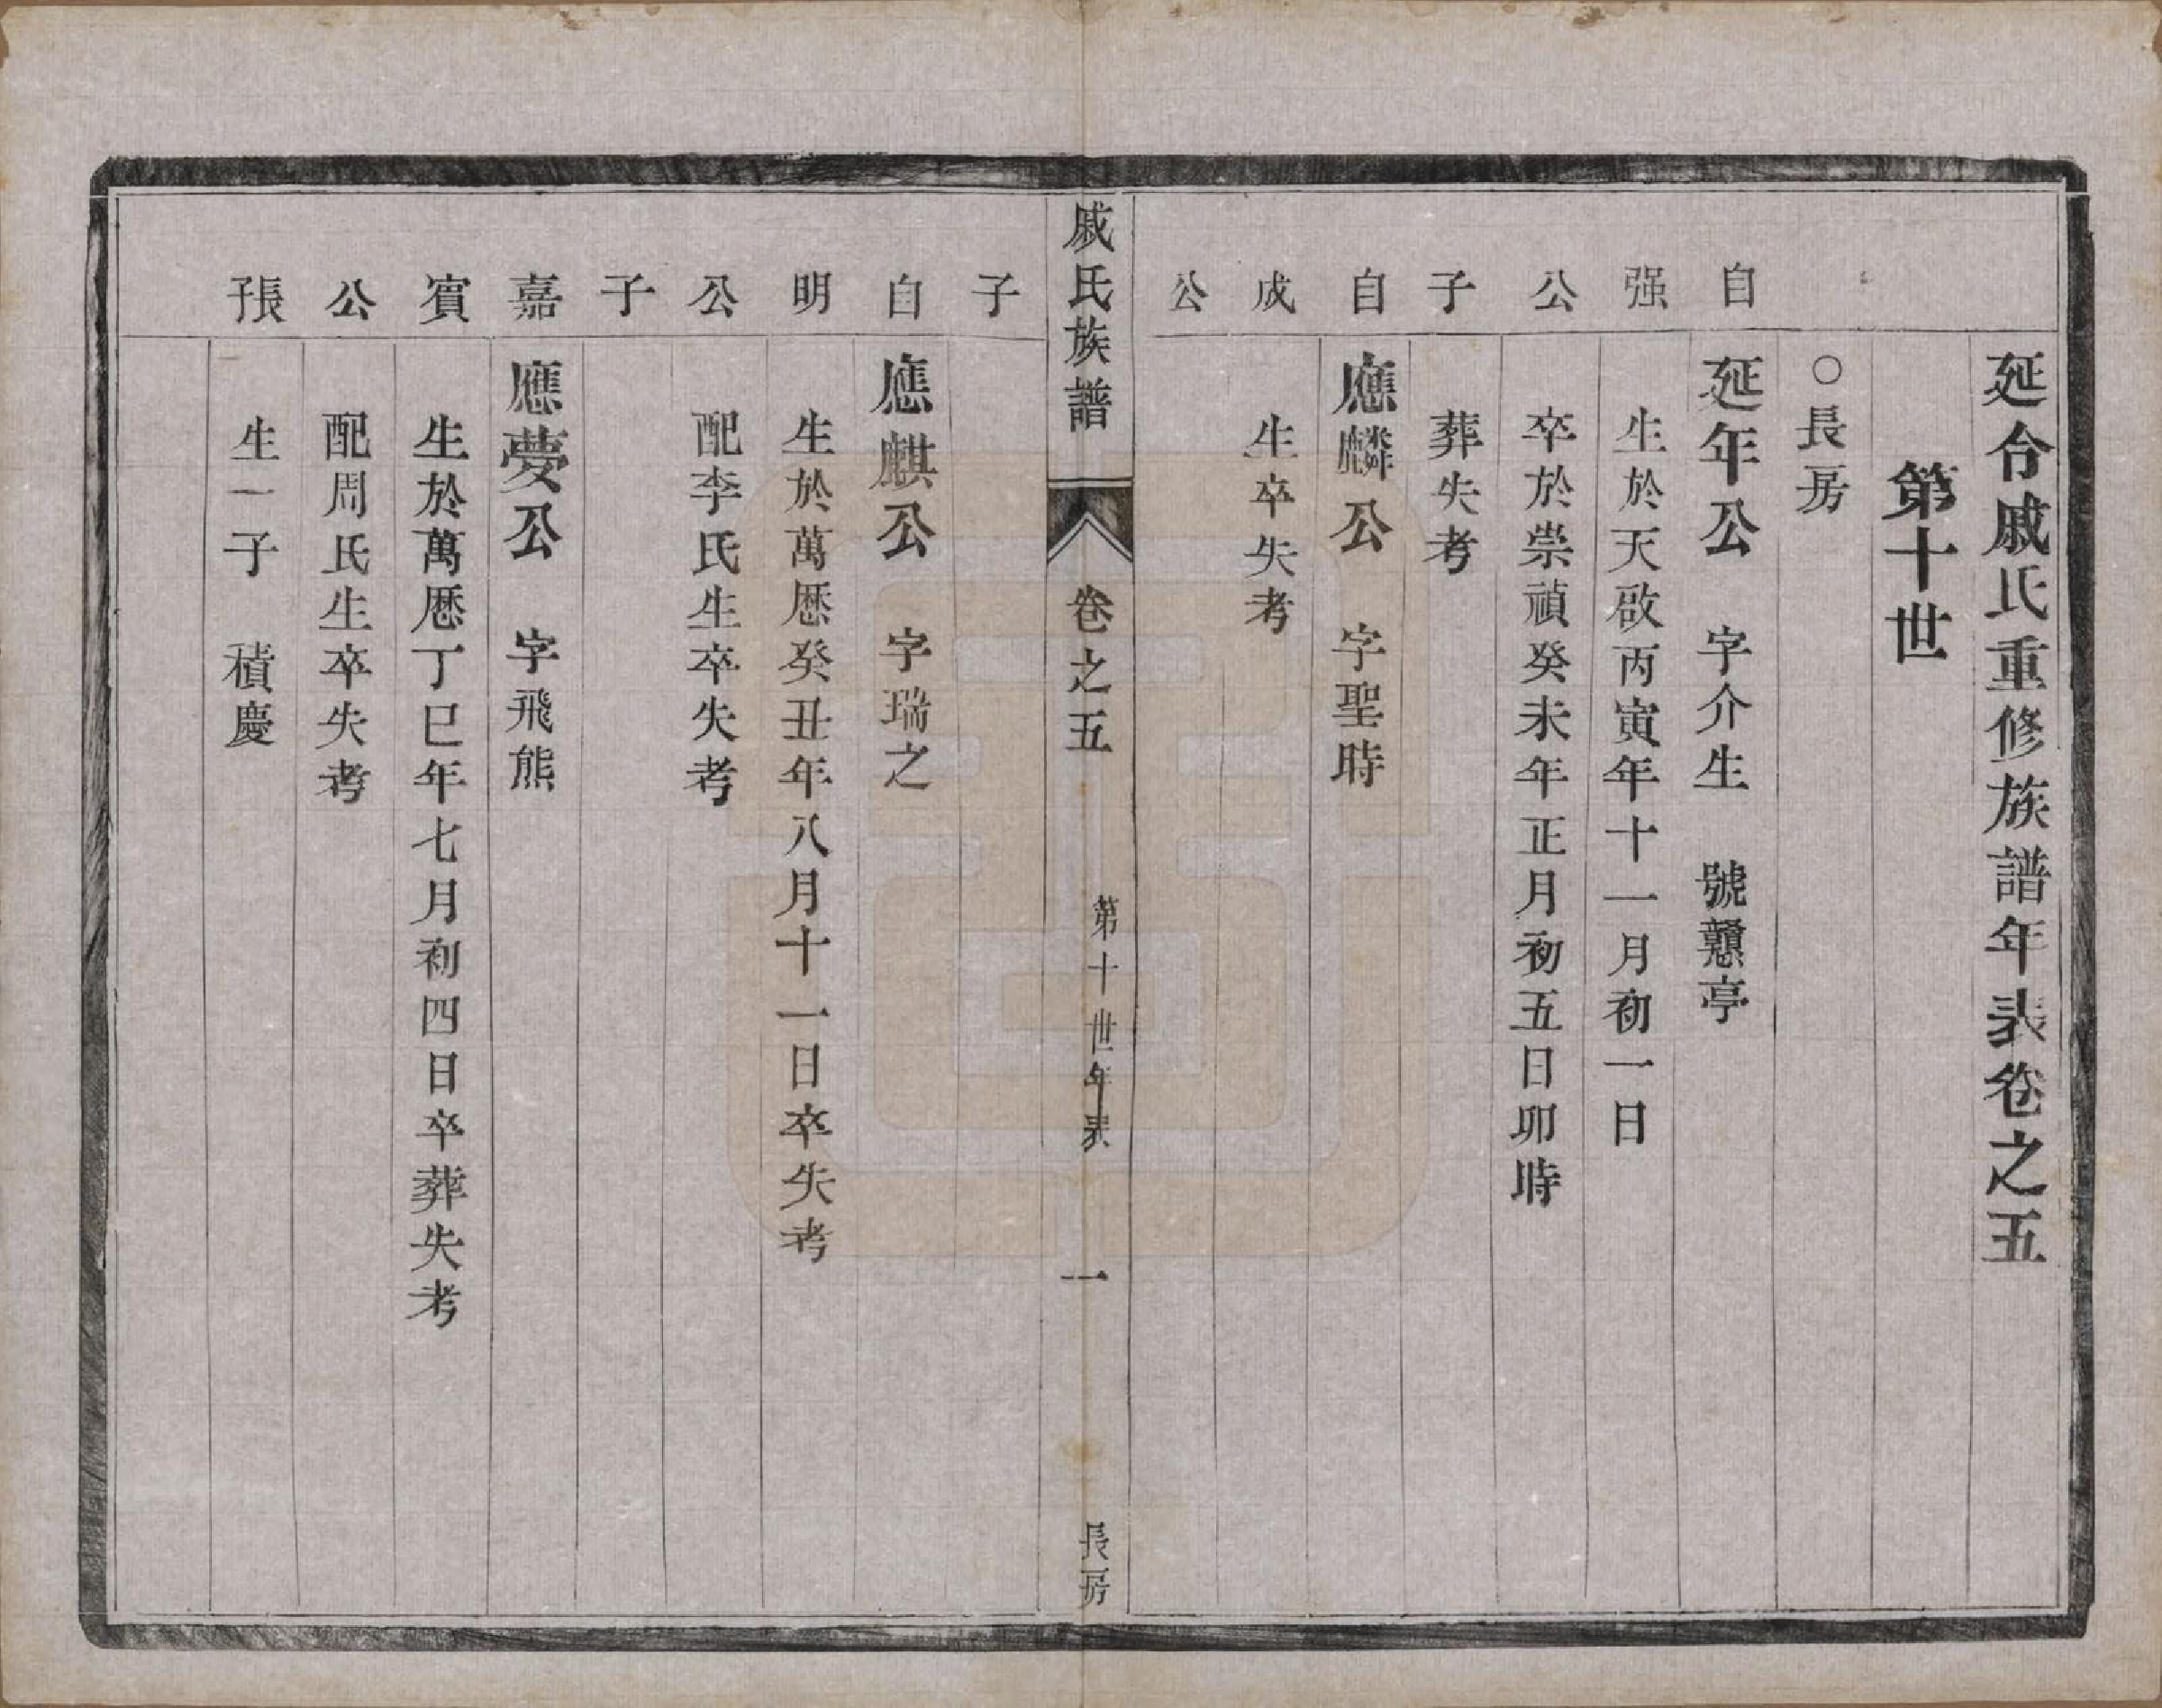 延令戚氏重修族譜年表卷之五
第十世
○長房
自
延年公 字介生 號戇亭
强
生於天啟丙寅年十一月初一日
公
卒於崇禎癸未年正月初五日卯時
子
葬失考
自
應麟公 字聖時
成
生卒失考
公
戚氏族譜 卷之五 第十世年表 一 長房
子
自
應麒公 字瑞之
明
生於萬厯癸丑年八月十一日卒失考
公
配李氏生卒失考
子
嘉
應夢公 字飛熊
賓
生於萬厯丁巳年七月初四日卒葬失考
公
配周氏生卒失考
子張
生一子 積慶